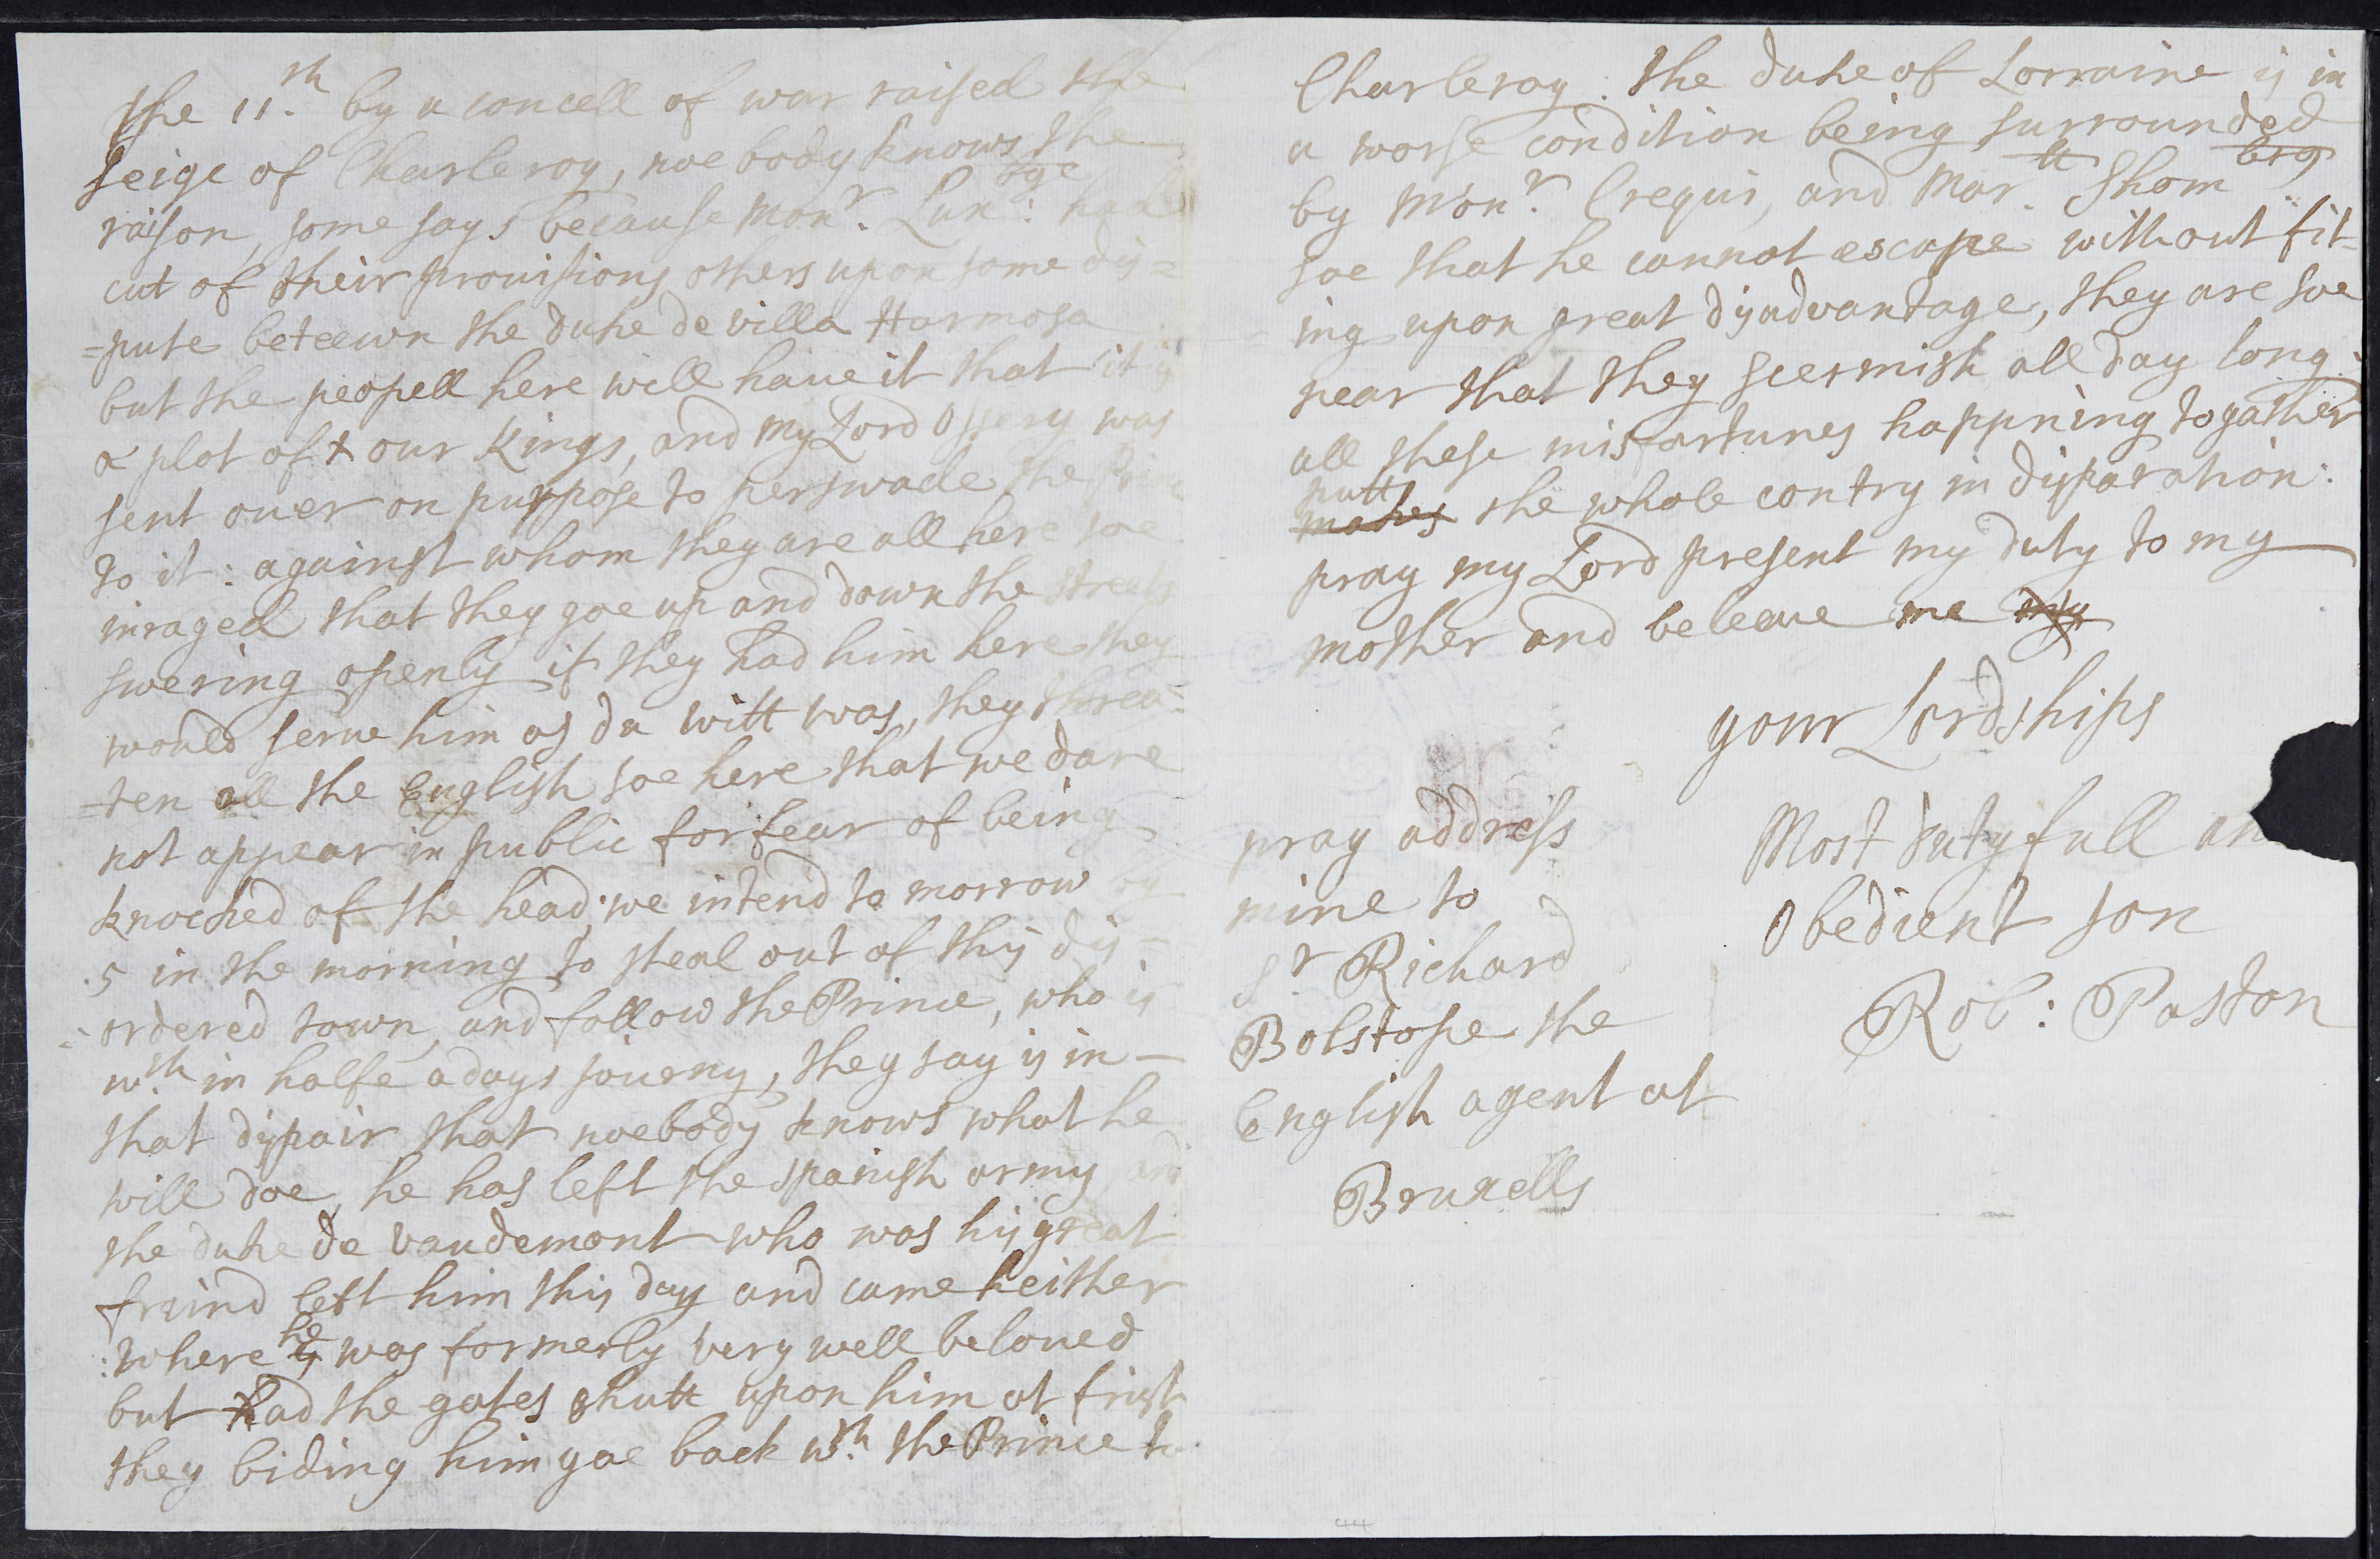 the 11.th by a councell of war raised the
seige of Charleroy, noe body knows the
raison, some says because Mon.r Lux:bge had
cut of their provisions others upon some dis=
=pute beteewn the duke de villa Harmosa
but the peopell here will have it that it is
a plot of our Kings, and my Lord Ossery was
sent over on purpose to perswade the Prince
to it: against whom they are all here soe
inraged that they goe up and down the streets
swering openly if they had him here they
would serve him as du witt was, they threa=
=ten all the English soe here that we dare
not appear in public for fear of being
knocked of the head; we intend to morrow by
5 in the morning to steal out of this dis=
ordered town, and follow the Prince, who is
w.th in halfe a days journy, they say is in
that dispair that noebody knows what he
will doe, he has left the spanish army and
the duke de Vaudemont who was his great
freind left him this day and came heither
where he was formerly very well beloved
but had the gates shutt upon him at frist
they biding him goe back w.th the Prince to
Charleroy: the duke of Lorraine is in
a worse condition being surrounded
by Mon.r Crequi, and Mar.ll Shomberg
soe that he cannot escape without fit=
=ing upon great disadvantage, they are soe
near that they scermish all day long:
all these misfortunes happning togather
putt makes the whole contry in disparation:
pray my Lord present my duty to my
mother and beleave me my
your Lordships
Most dutyfull an
Obedient son
Rob: Paston
pray address
mine to
S.r Richard
Bolstope the
English agent at
Bruxells
44